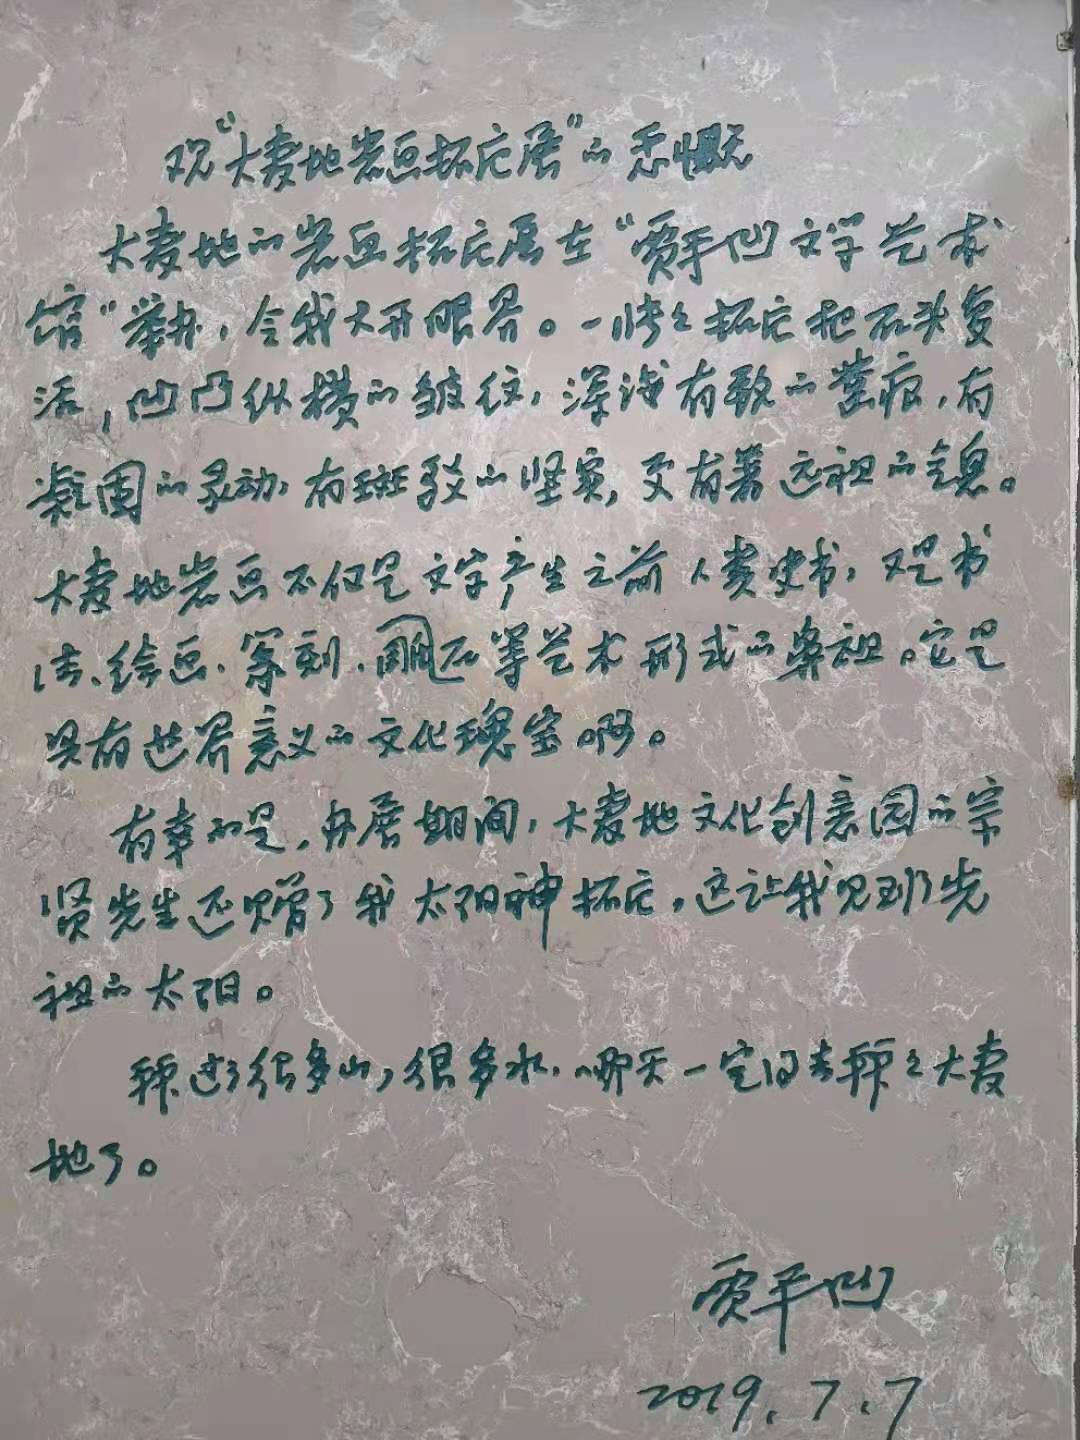 观“大麦地岩画拓片展”的感慨
大麦地的岩画拓片展在“贾平凹文学艺术
馆”举办，令我大开眼界。一张张拓片把石头复
活，凹凸纵横的皴纹，深浅有致的凿痕，有
凝固的灵动，有斑驳的坚实，更有着远祖的气息。
大麦地岩画不仅是文字产生之前人类史书，又是书
法、绘画、篆刻、雕石等艺术形式的鼻祖。它是
具有世界意义的文化瑰宝啊。
有幸的是，办展期间，大麦地文化创意园的宗
贤先生还赠了我太阳神拓片，这让我见到了先
祖的太阳。
走过了很多山，很多水，哪天一定得去走走大麦
地了。
贾平凹
2019.7.7